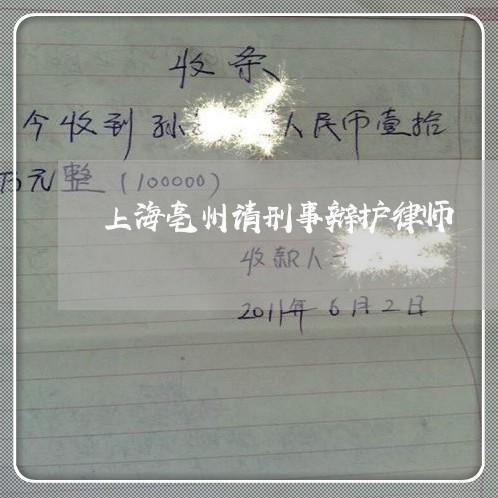 收条
今收到孙人民币壹拾
万元整(100000)
上海亳州请刑事辩护律师
收款人
2011年6月2日